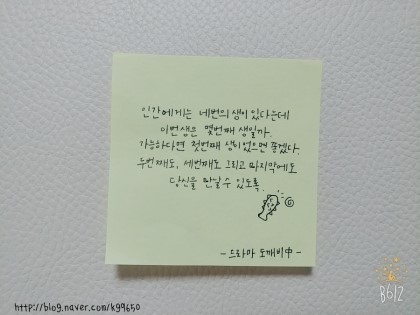 인간에게는 네번의 생이 있다는데
이번생은 몇번째 생일까.
가능하다면 첫번째 생이었으면 좋겠다.
두번째도, 세번째도 그리고 마지막에도
당신을 만날 수 있도록.
- 드라마 도깨비中 -
http://blog.naver.com/kg9650
B612